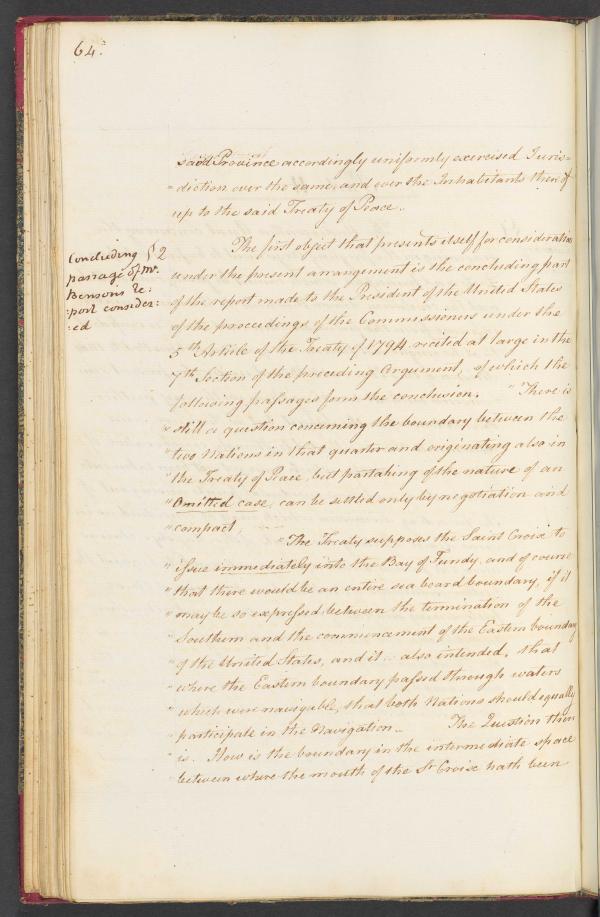 64.
said Province accordingly uniformly exercised Juris=
=diction over the same, and over the Inhabitants thereof
up to the said Treaty of Peace..
Concluding § 2
passage of Mr.
Benson's Re:
:port consider:
:ed
The first object that presents itself for consideration
under the present arrangement is the concluding part
of the report made to the President of the United States
of the proceedings of the Commissioners under the
5th Article of the Treaty of 1794 recited at large in the
7th Section of the preceding Argument, of which the
following passages form the conclusion. "There is
"still a question concerning the boundary between the
"two Nations in that quarter and originating also in
"the Treaty of Peace, but partaking of the nature of an
"Omitted case, can be settled only by negotiation and
"compact.
"The Treaty supposes the Saint Croix to
"issue immediately into the Bay of Fundy, and of course
"that there would be an entire sea board boundary, if it
"may be so expressed between the termination of the
"Southern and the commencement of the Eastern boundary
"of the United States, and it also intended, that
"where the Eastern boundary passed through waters
"which were navigable, that both Nations should equally
"participate in the Navigation.. The Question then
"is. How is the boundary in the intermediate space
"between where the mouth of the St Croix hath been